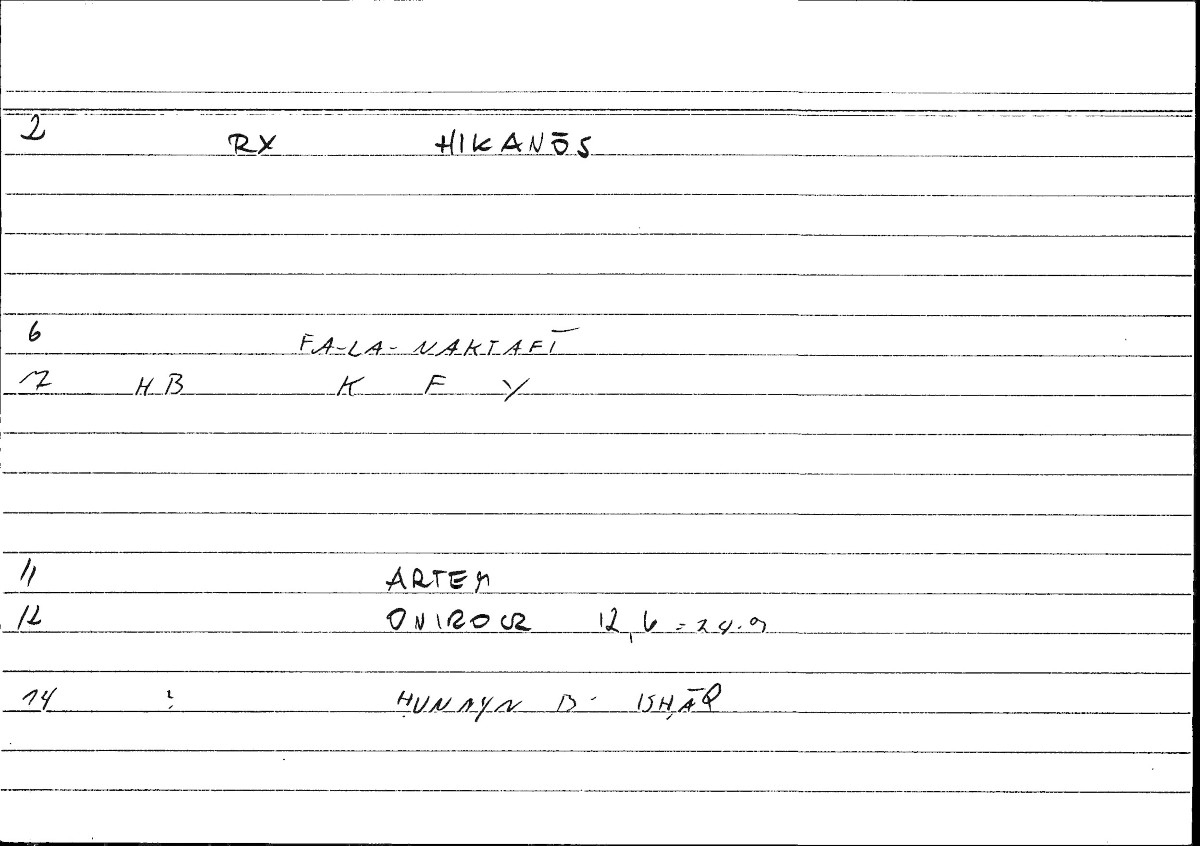 2 RX HIKANŌS
6 FA-LA- NAKTAFĪ
17 HB K F Y
11 ARTEM
12 ONIROCR 12,6 = 24.9
14 : ḤUNAYN B. ISḤĀQ